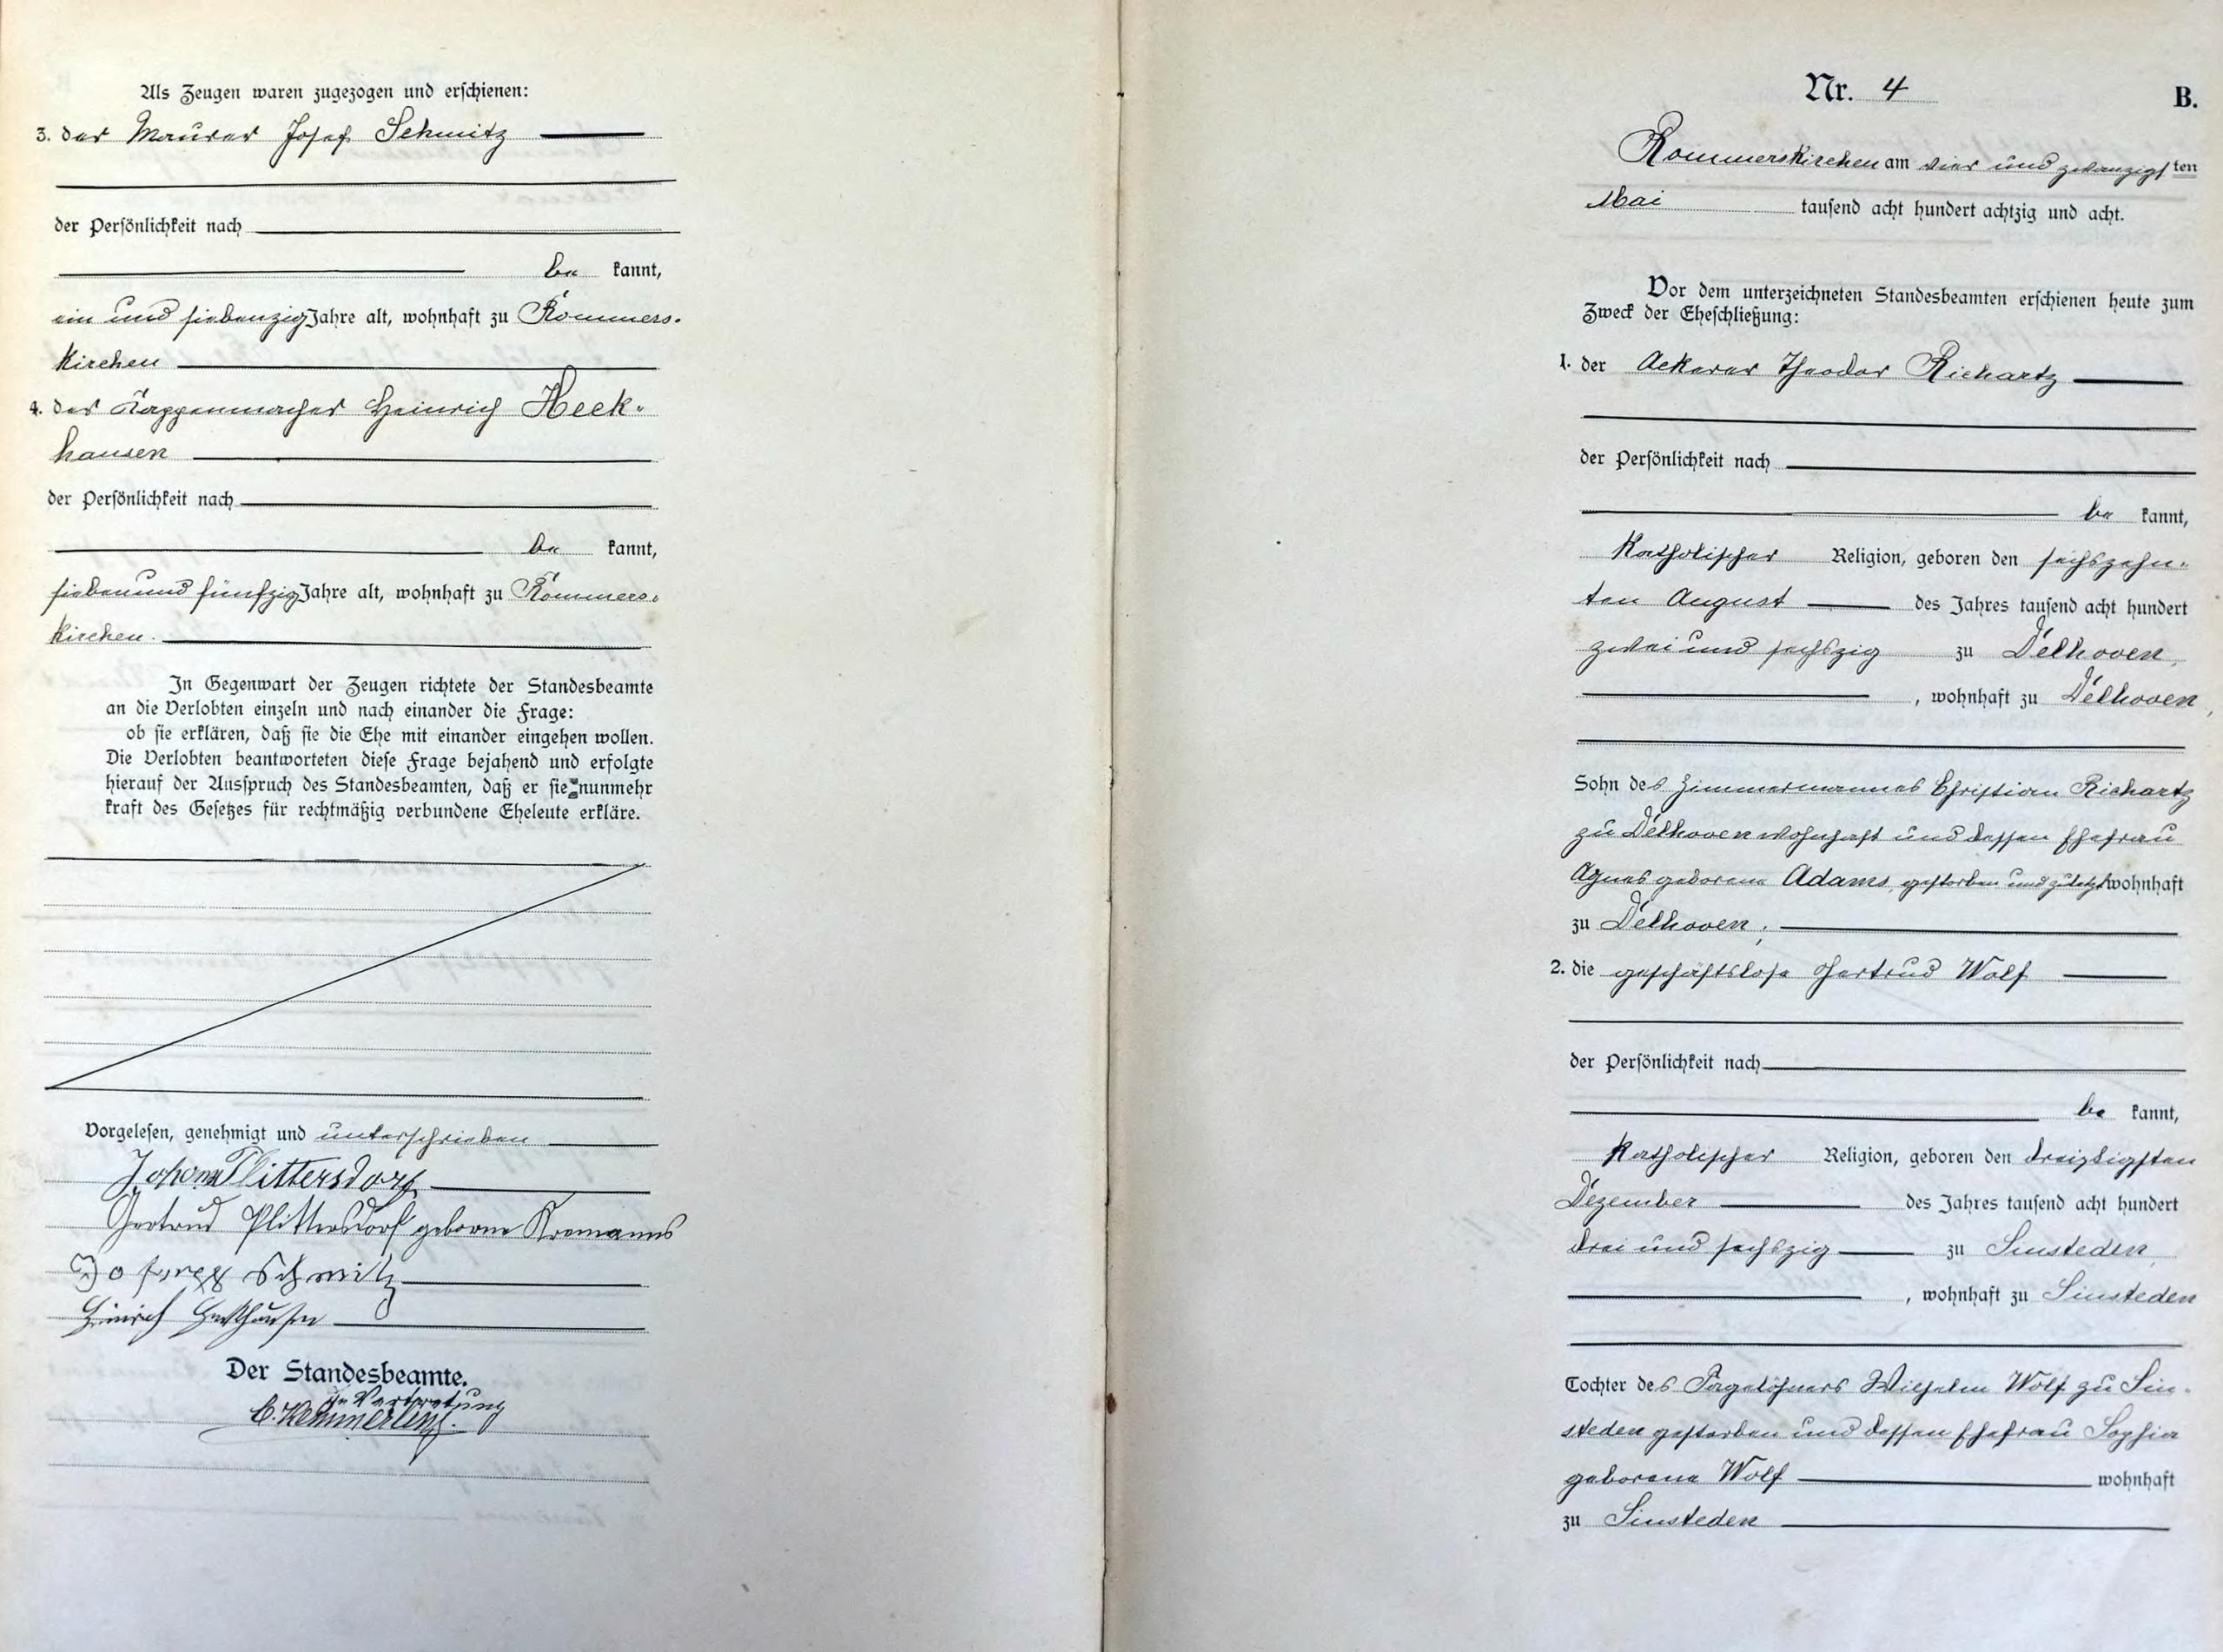 Als Zeugen waren zugezogen und erschienen:
3. der Maurer Josef Schmitz
der Persönlichkeit nach
be kannt,
ein und siebenzig Jahre alt, wohnhaft zu Rommers-
kirchen
4. der Kappenmacher Heinrich Heck-
hausen
der Persönlichkeit nach
be kannt,
sieben und fünfzig Jahre alt, wohnhaft zu Rommers-
kirchen.
In Gegenwart der Zeugen richtete der Standesbeamte
an die Verlobten einzeln und nach einander die Frage:
ob sie erklären, daß sie die Ehe mit einander eingehen wollen.
Die Verlobten beantworteten diese Frage bejahend und erfolgte
hierauf der Ausspruch des Standesbeamten, daß er sie nunmehr
kraft des Gesetzes für rechtmäßig verbundene Eheleute erkläre.
Vorgelesen, genehmigt und unterschrieben
Johann Plittersdorf
Gertrud Plittersdorf geborne Kremanns
Josef Schmitz
Heinrich Heckhausen
Der Standesbeamte.
In Vertretung
C. Kemmerling.
Nr. 4
B.
Rommerskirchen am vier und zwanzigsten
Mai tausend acht hundert achtzig und acht.
Vor dem unterzeichneten Standesbeamten erschienen heute zum
Zweck der Eheschließung:
1. der Ackerer Theodor Richartz
der Persönlichkeit nach
be kannt,
Katholischer Religion, geboren den sechszehn-
ten August des Jahres tausend acht hundert
zwei und sechszig zu Delhoven,
, wohnhaft zu Delhoven,
Sohn des Zimmermannes Christian Richartz
zu Delhoven wohnhaft und dessen Ehefrau
Agnes geborene Adams, gestorben und zuletzt wohnhaft
zu Delhoven;
2. die geschäftslose Gertrud Wolf
der Persönlichkeit nach
be kannt,
Katholischer Religion, geboren den dreizsigsten
Dezember des Jahres tausend acht hundert
drei und sechszig zu Sinsteden,
, wohnhaft zu Sinsteden
Tochter des Tagelöhners Wilhelm Wolf zu Sin-
steden gestorben und dessen Ehefrau Sophia
geborene Wolf wohnhaft
zu Sinsteden